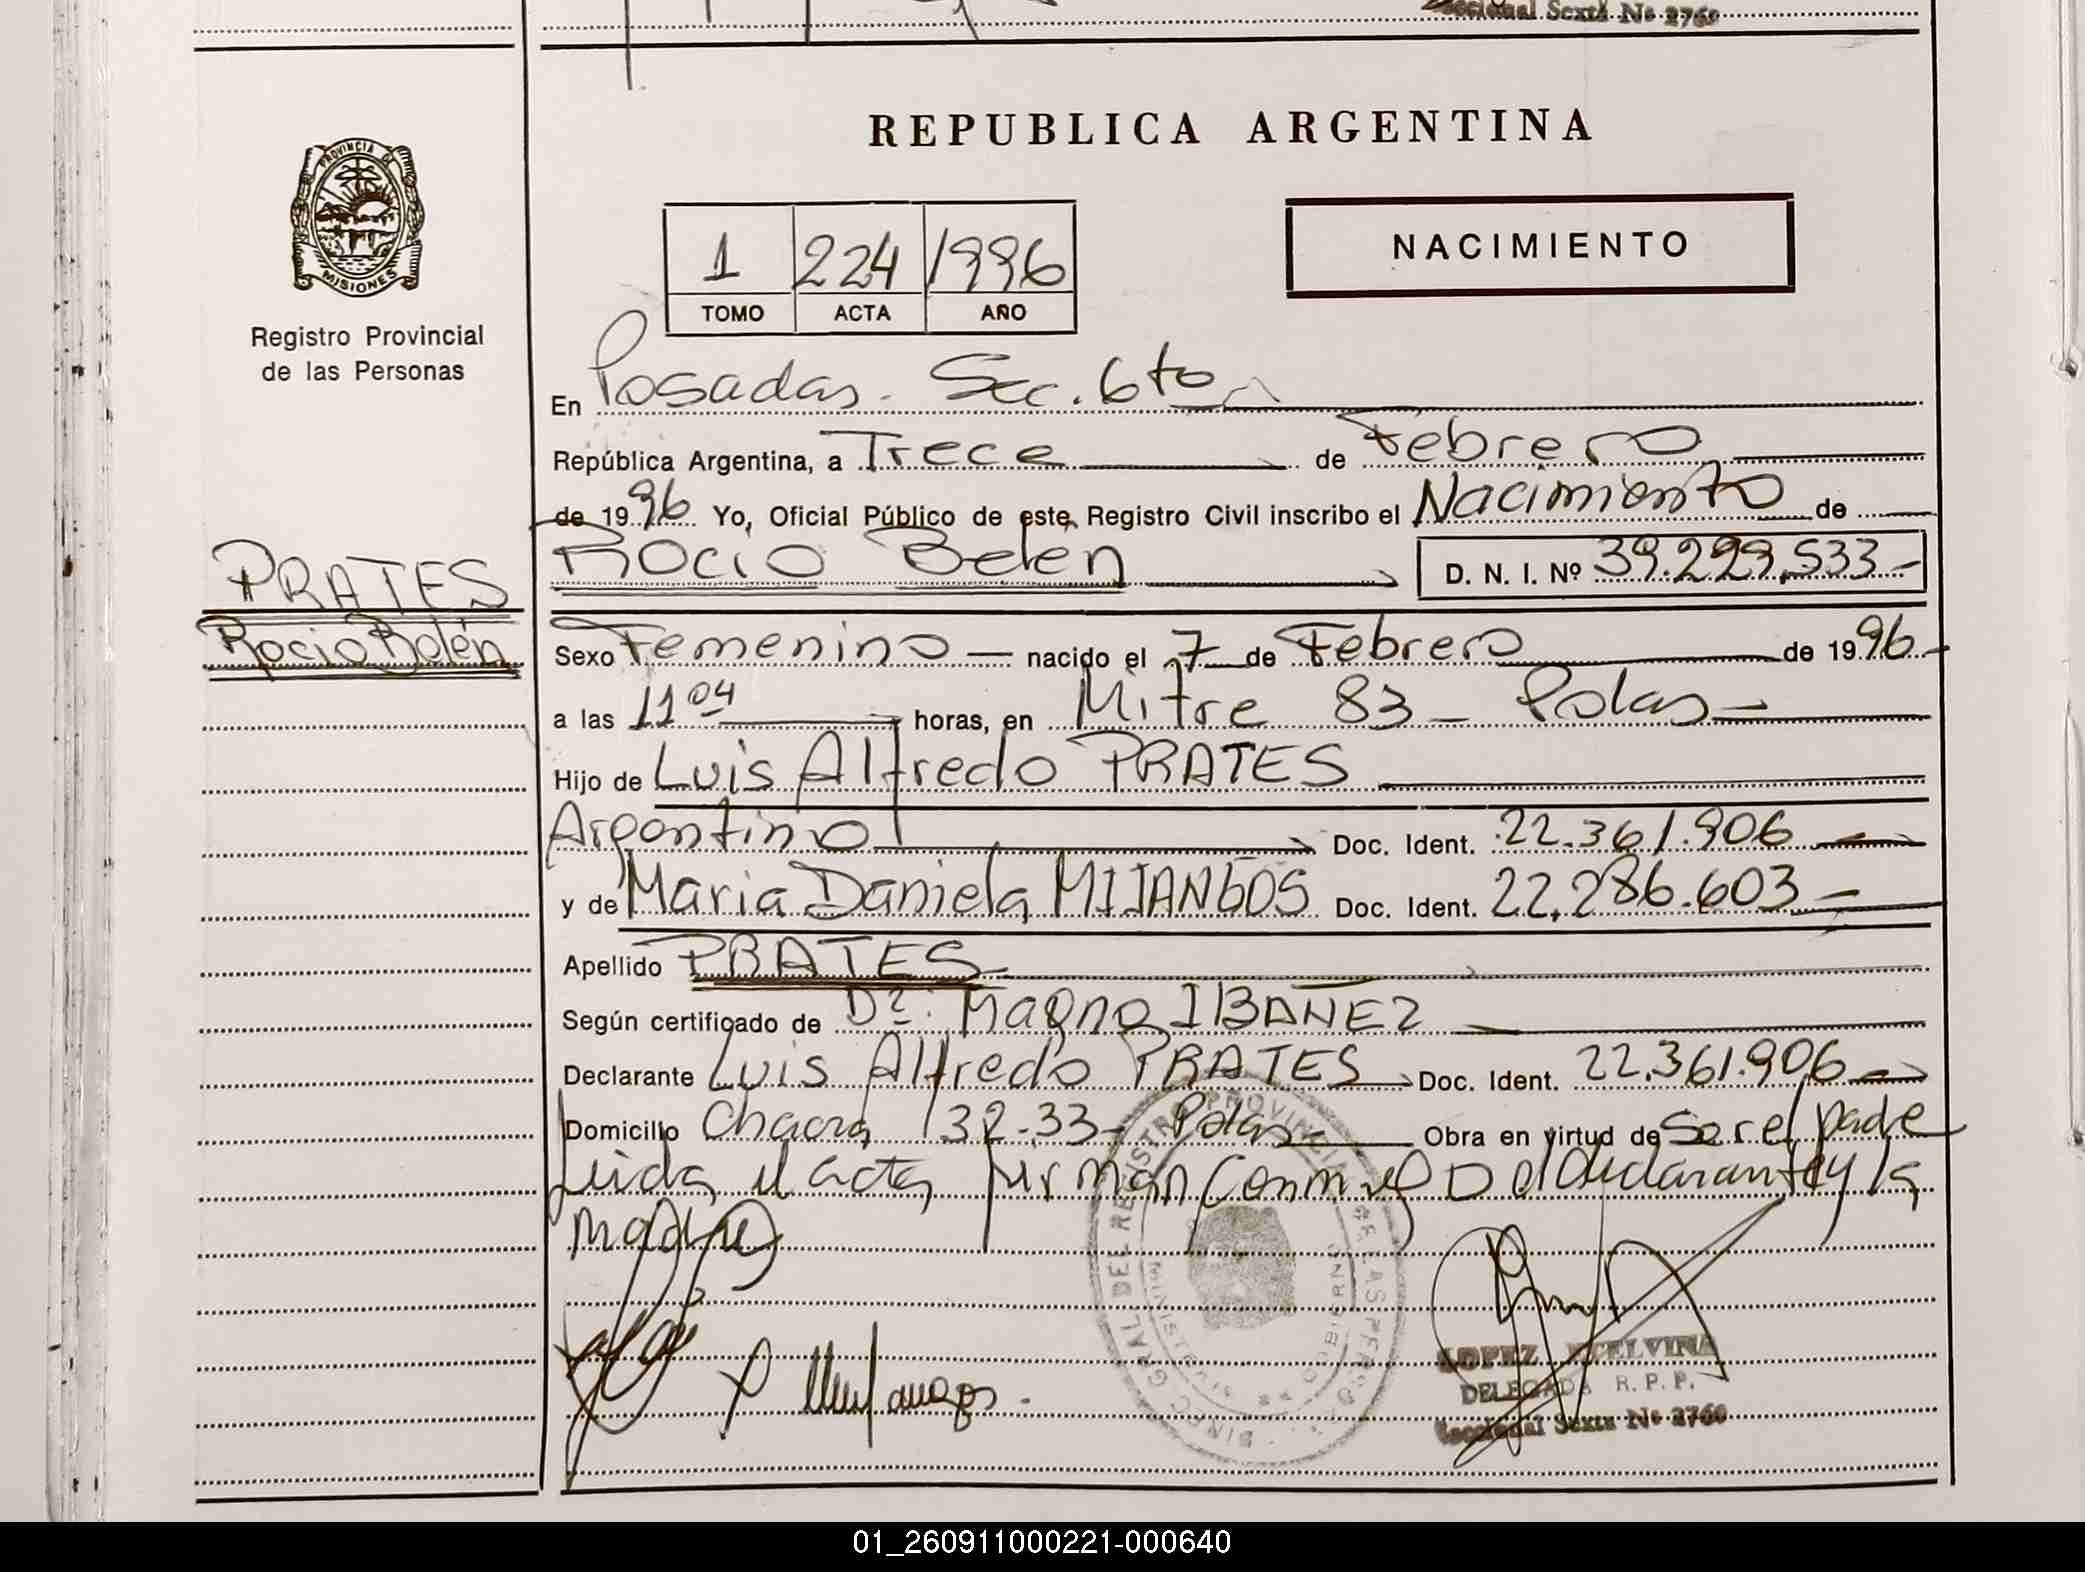 Seccional Sexta Nº 2760
REPUBLICA ARGENTINA
PROVINCIA DE
MISIONES
Registro Provincial
de las Personas
1 224 1996
TOMO ACTA AÑO
NACIMIENTO
En Posadas. Sec. 6ta
República Argentina, a Trece de Febrero
de 1996 Yo, Oficial Público de este Registro Civil inscribo el Nacimiento de
Rocio Belén D. N. I. Nº 39.229.533-
PRATES
Rocio Belén
Sexo Femenino nacido el 7 de Febrero de 1996
a las 11 04 horas, en Mitre 83 - Pdas
Hijo de Luis Alfredo PRATES
Argentino Doc. Ident. 22.361.906
y de Maria Daniela MIJANGOS Doc. Ident. 22.286.603
Apellido PRATES
Según certificado de Dr. Magno IBAÑEZ
Declarante Luis Alfredo PRATES Doc. Ident. 22.361.906
Domicilio Chacra 132-33- Pdas Obra en virtud de Ser el padre
Leida el acta firman conmigo el declarante y la
madre
LOPEZ ETELVINA
DELEGADA R. P. P.
Seccional Sexta Nº 2760
01_260911000221-000640